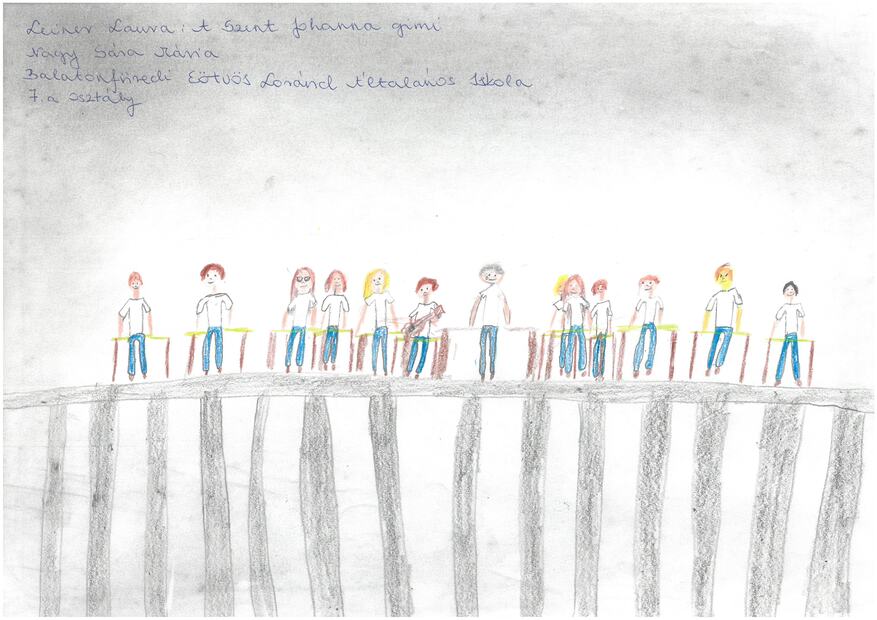 Leiner Laura: A Szent Johanna gimi
Nagy Sára Mária
Balatonfüredi Eötvös Loránd Általános Iskola
7. a osztály